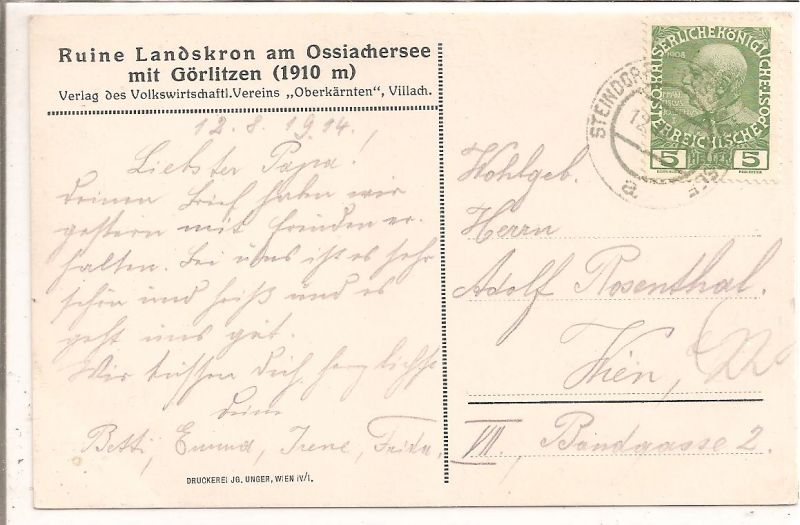 Ruine Landskron am Ossiachersee
mit Görlitzen (1910 m)
Verlag des Volkswirtschaftl.Vereins „Oberkärnten“, Villach.
12. 8. 1914.
Liebster Papa!
deinen Brief haben wir
gestern mit Freuden er-
halten. Bei uns ist es sehr
schön und heiß und es
geht uns gut.
Wir küssen Dich herzlichst
deine
Betti, Emma, Irene, Frida,
DRUCKEREI JG. UNGER, WIEN IV/1.
KAISERLICHE KÖNIGLICHE
ÖSTERREICHISCHE POST
1908
5 HELLER 5
STEINDORF
12
a
Wohlgeb.
Herrn
Adolf Rosenthal.
Wien,
VII. Bandgasse 2.